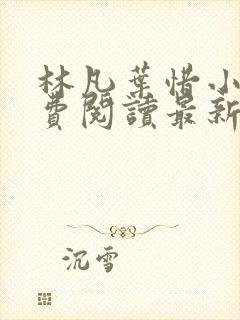 林凡葉惜小
費閱讀最新
沉雪